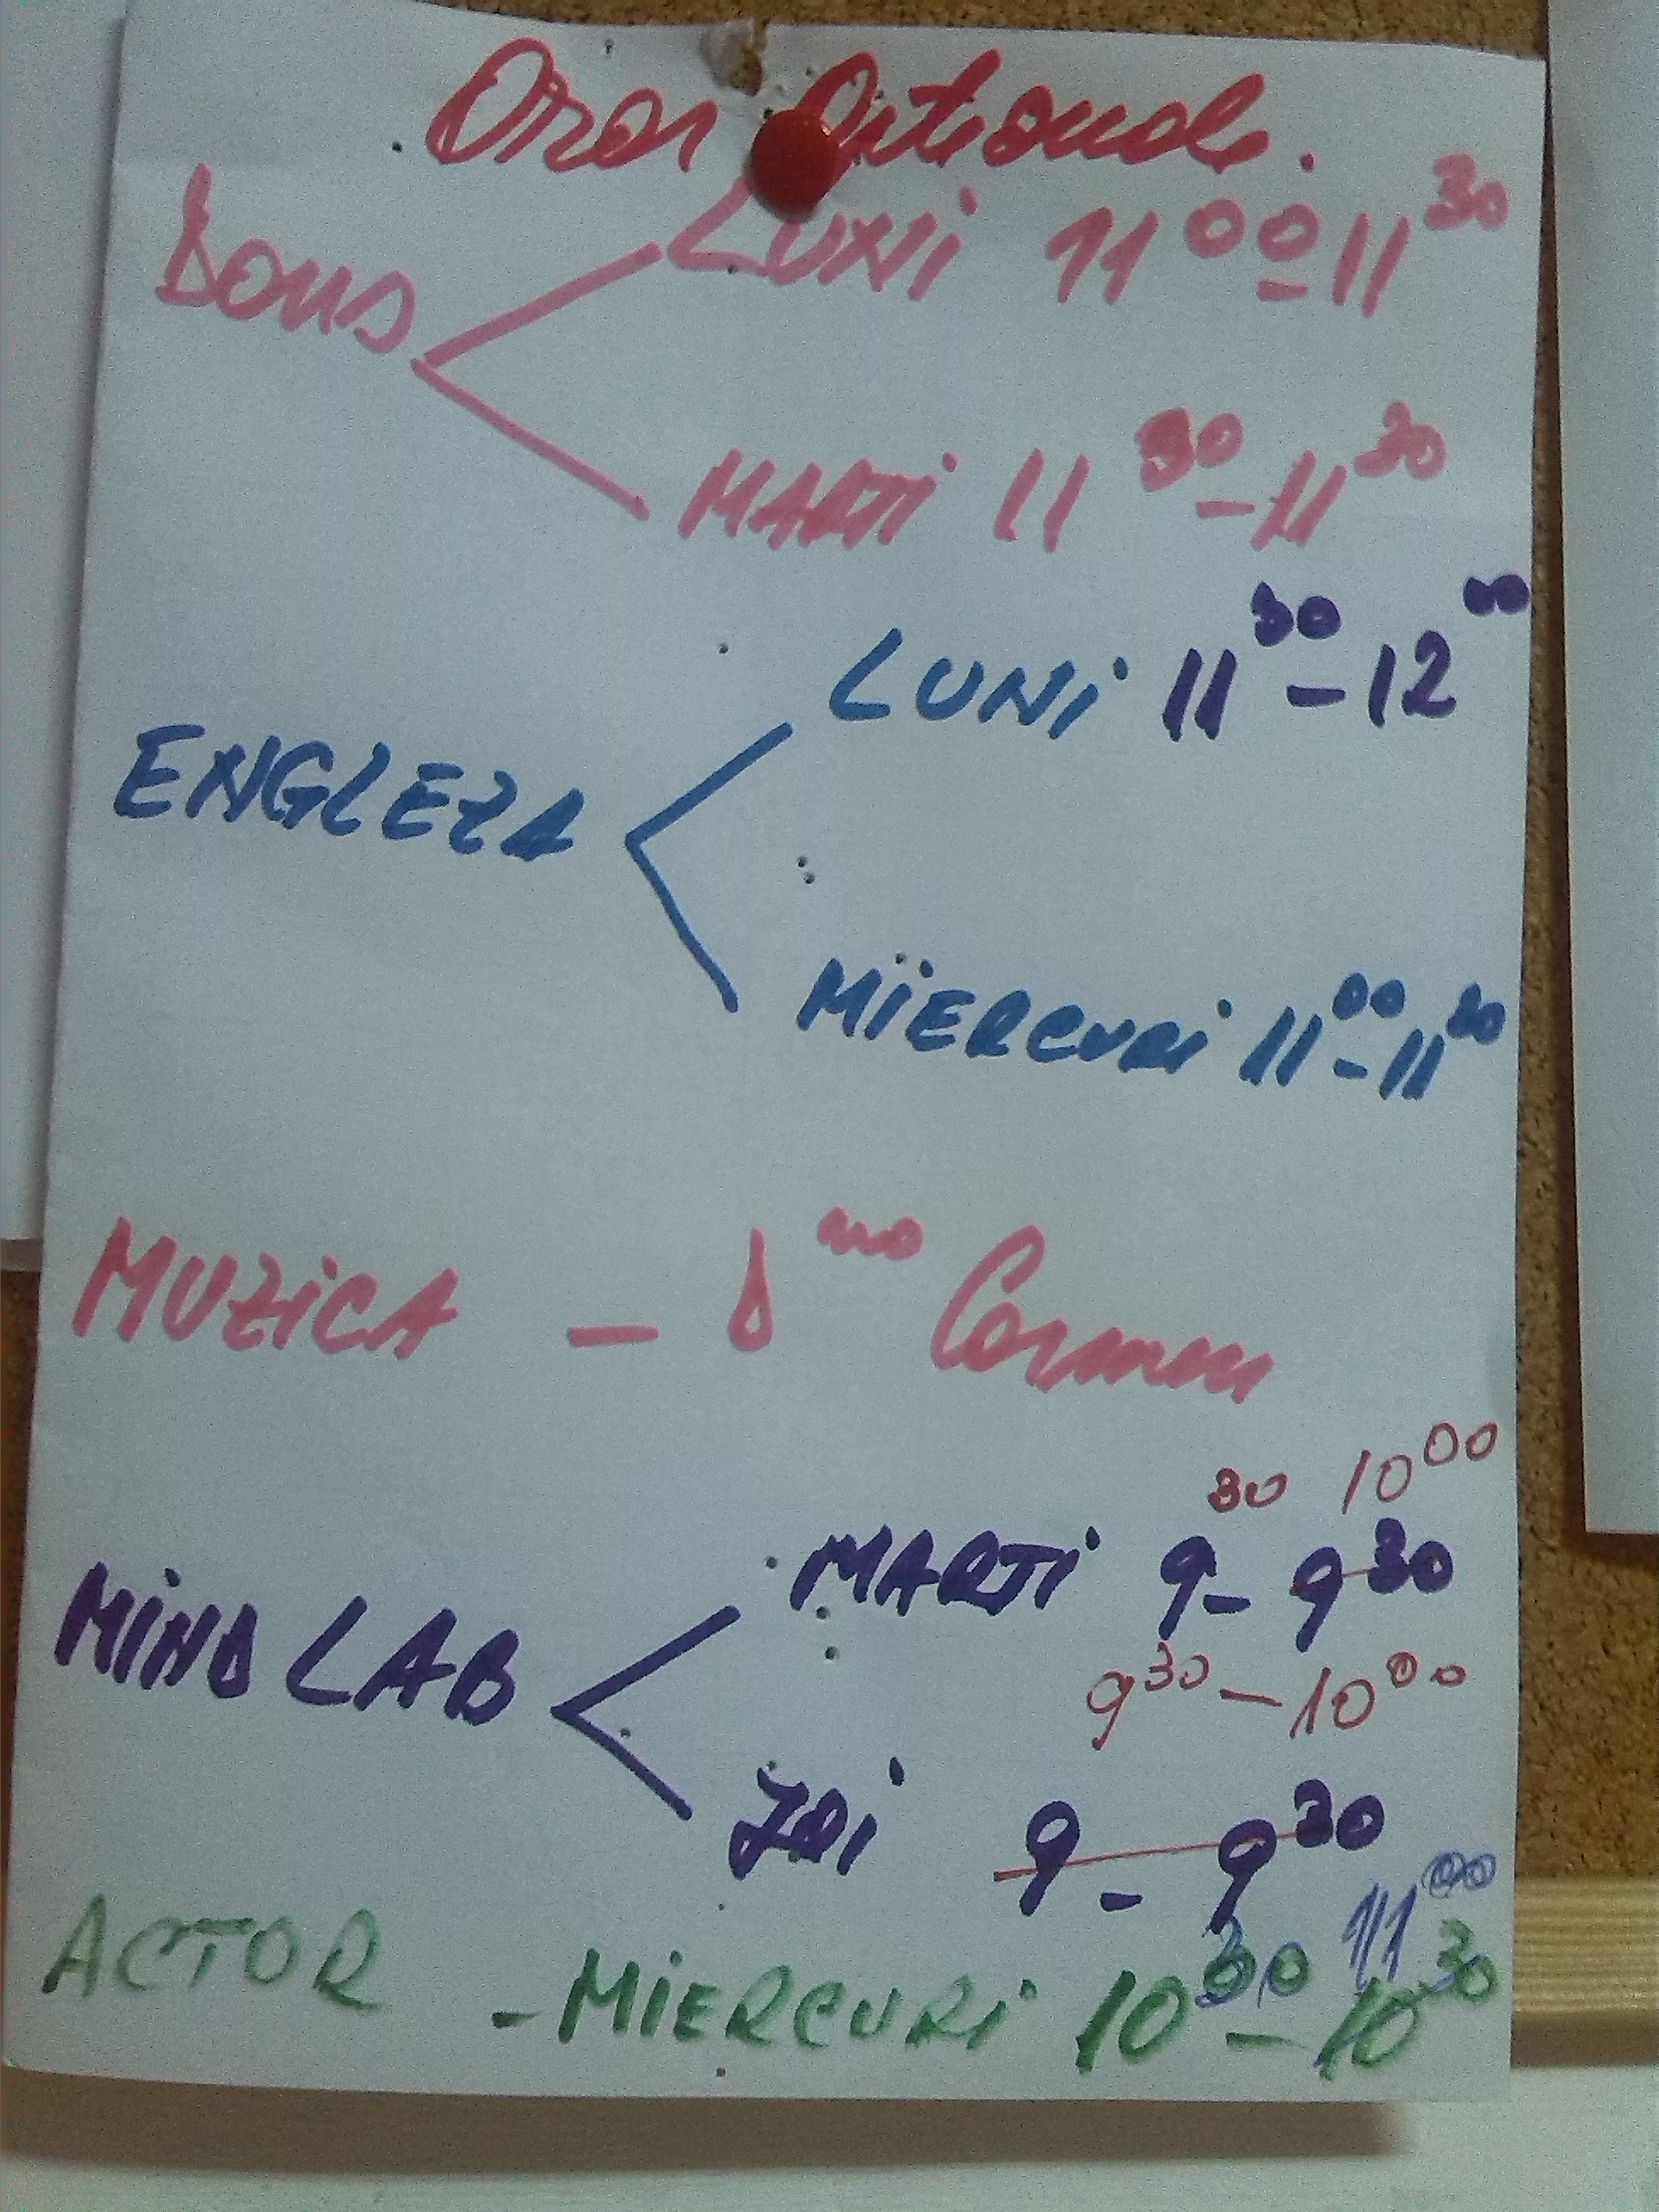 Orar Optionale.
Dans
LUNI 11 00 - 11 30
MARTI 11 30 - 11 30
LUNI 11 30 - 12 00
ENGLEZA
MIERCURI 11 00 - 11 30
MUZICA - Carmen
30 10 00
MARTI 9 - 9 30
MIND LAB
9 30 - 10 00
JOI 9 - 9 30
11 00
ACTOR - MIERCURI 10 - 10 30